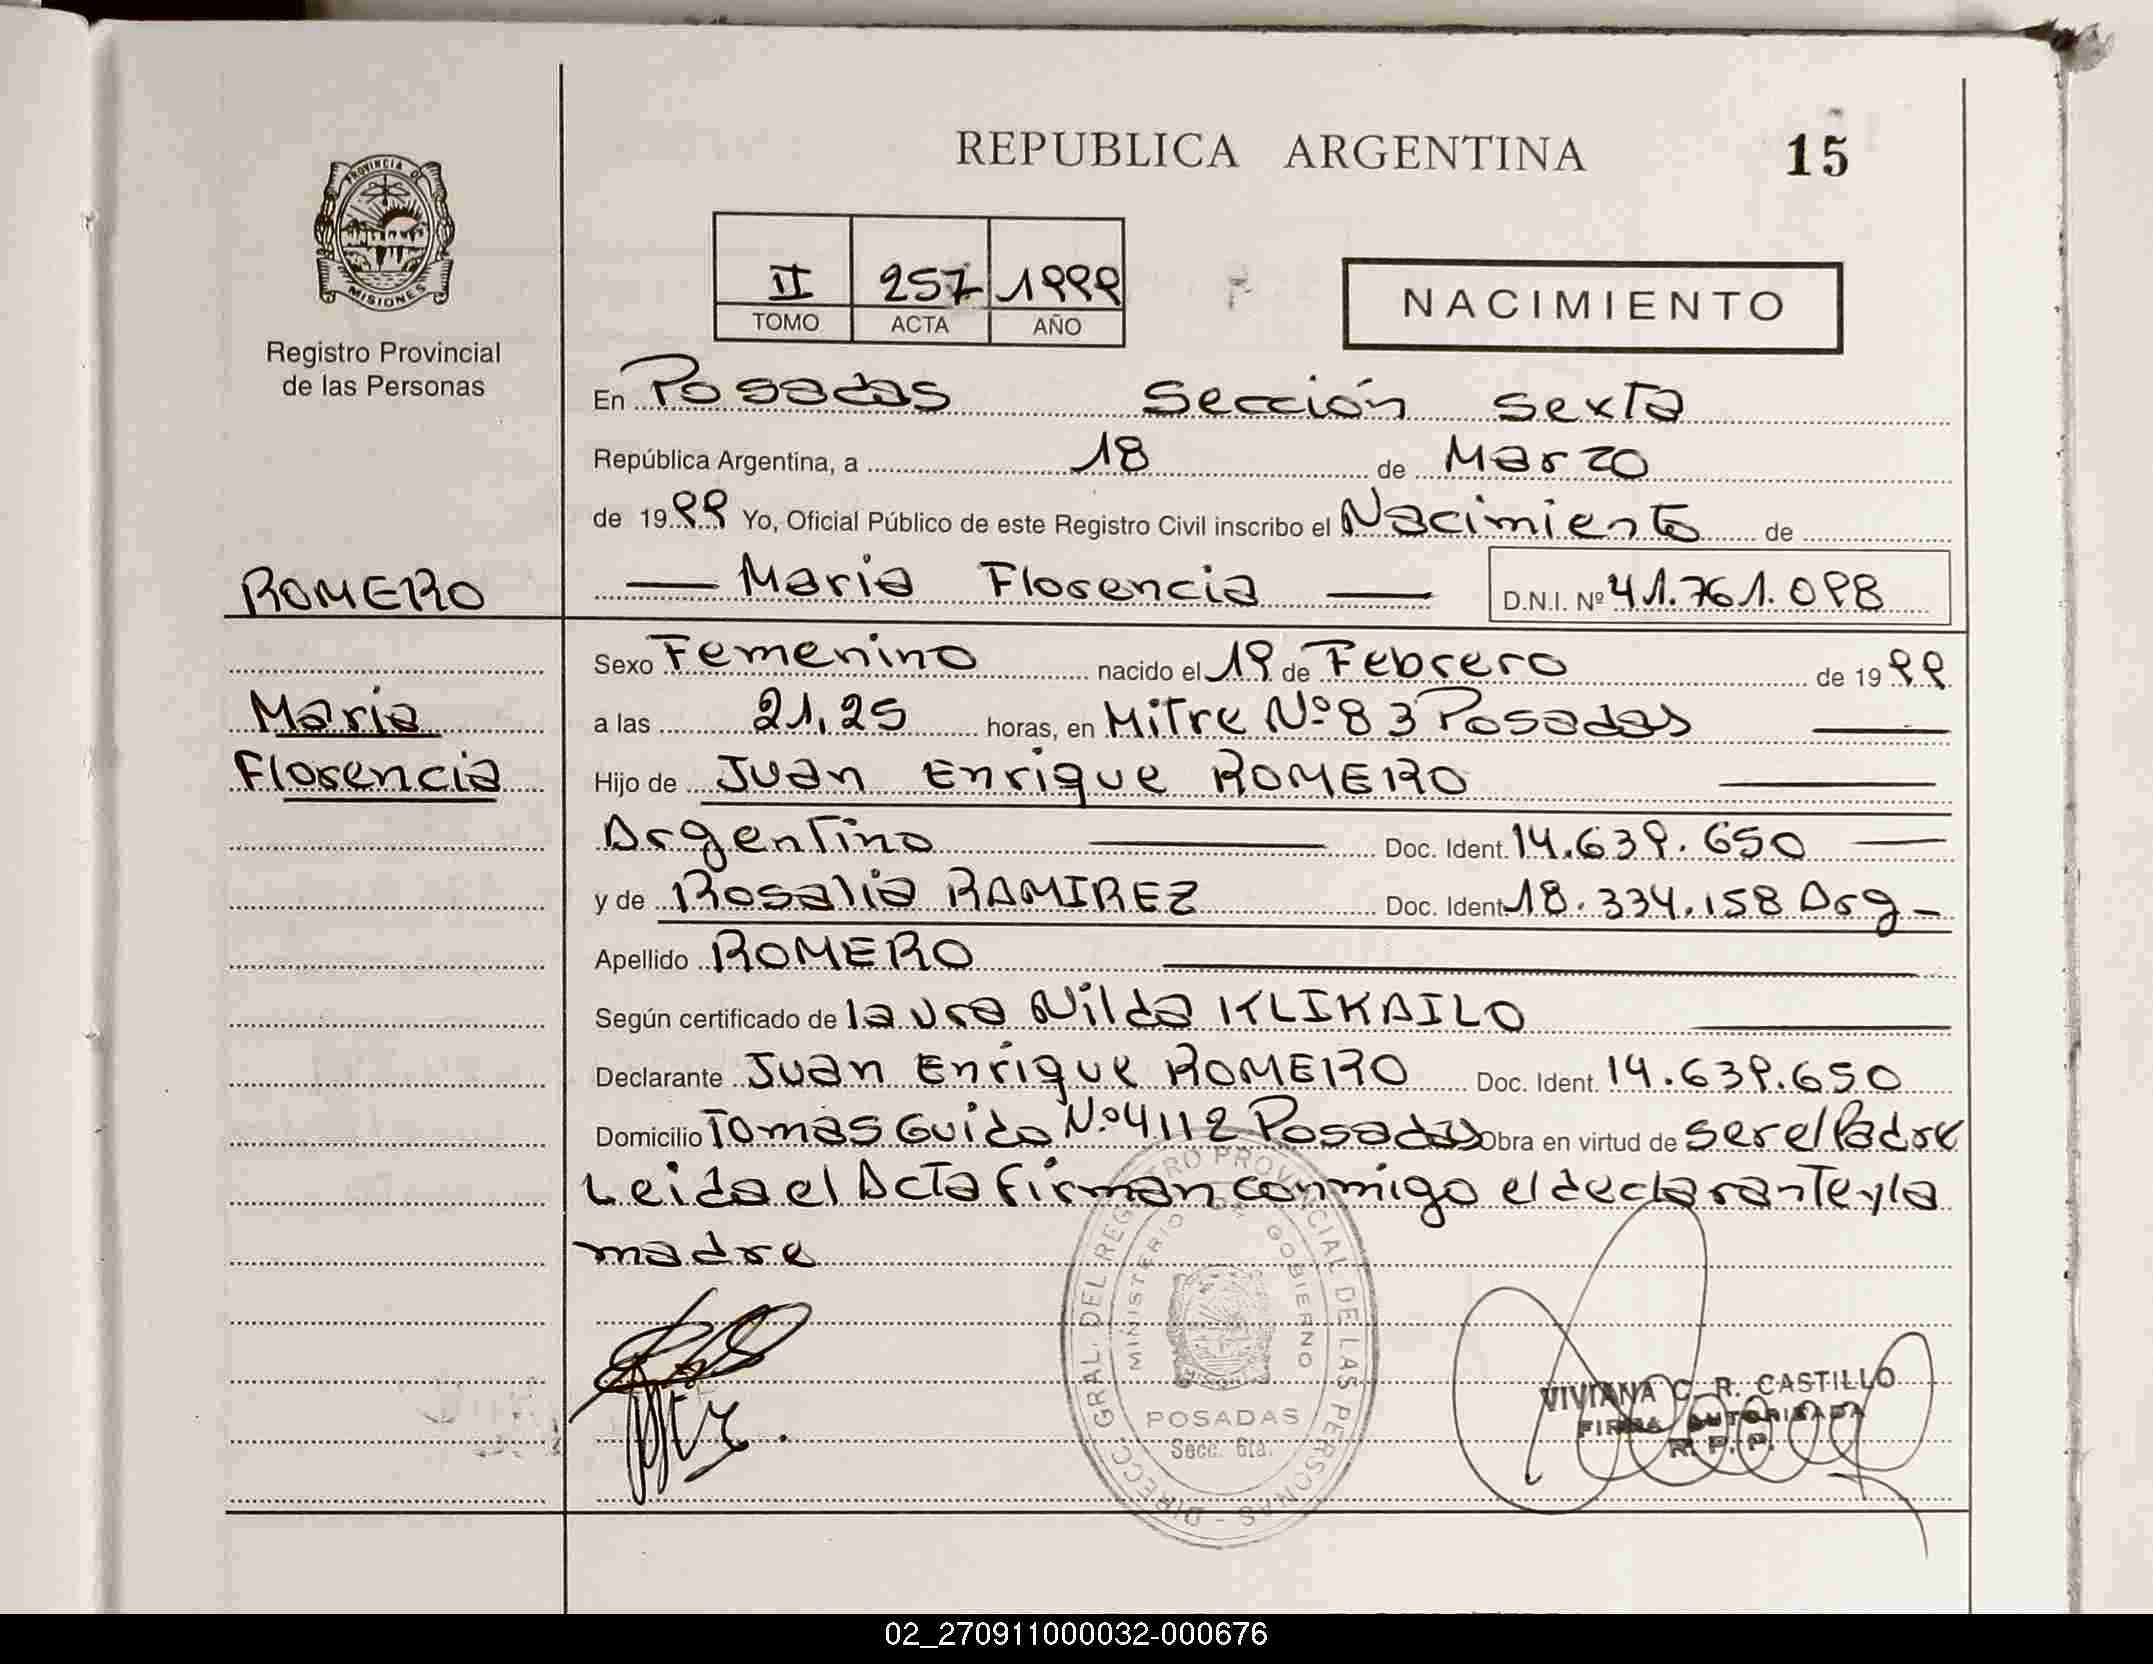 REPUBLICA ARGENTINA 15
PROVINCIA DE
MISIONES
Registro Provincial
de las Personas
II 257 1999
TOMO ACTA AÑO
NACIMIENTO
En Posadas Sección Sexta
República Argentina, a 18 de Marzo
de 1999 Yo, Oficial Público de este Registro Civil inscribo el Nacimiento de
ROMERO
Maria Florencia
— Maria Florencia — D.N.I. Nº 41.761.098
Sexo Femenino nacido el 19 de Febrero de 1999
a las 21,25 horas, en Mitre Nº 83 Posadas —
Hijo de Juan Enrique ROMERO —
Argentino — Doc. Ident. 14.639.650 —
y de Rosalia RAMIREZ Doc. Ident 18.334.158 Arg -
Apellido ROMERO —
Según certificado de laura Nilda KLIKAILO —
Declarante Juan Enrique ROMERO Doc. Ident. 14.639.650
Domicilio Tomás Guido Nº 4112 Posadas Obra en virtud de ser el Padre
Leida el Acta firman conmigo el declarante y la
madre
DIRECC. GRAL. DEL REGISTRO PROVINCIAL DE LAS PERSONAS -
MINISTERIO DE GOBIERNO
POSADAS
Secc. 6ta.
VIVIANA C. R. CASTILLO
FIRMA AUTORISADA
R. P. P.
02_270911000032-000676